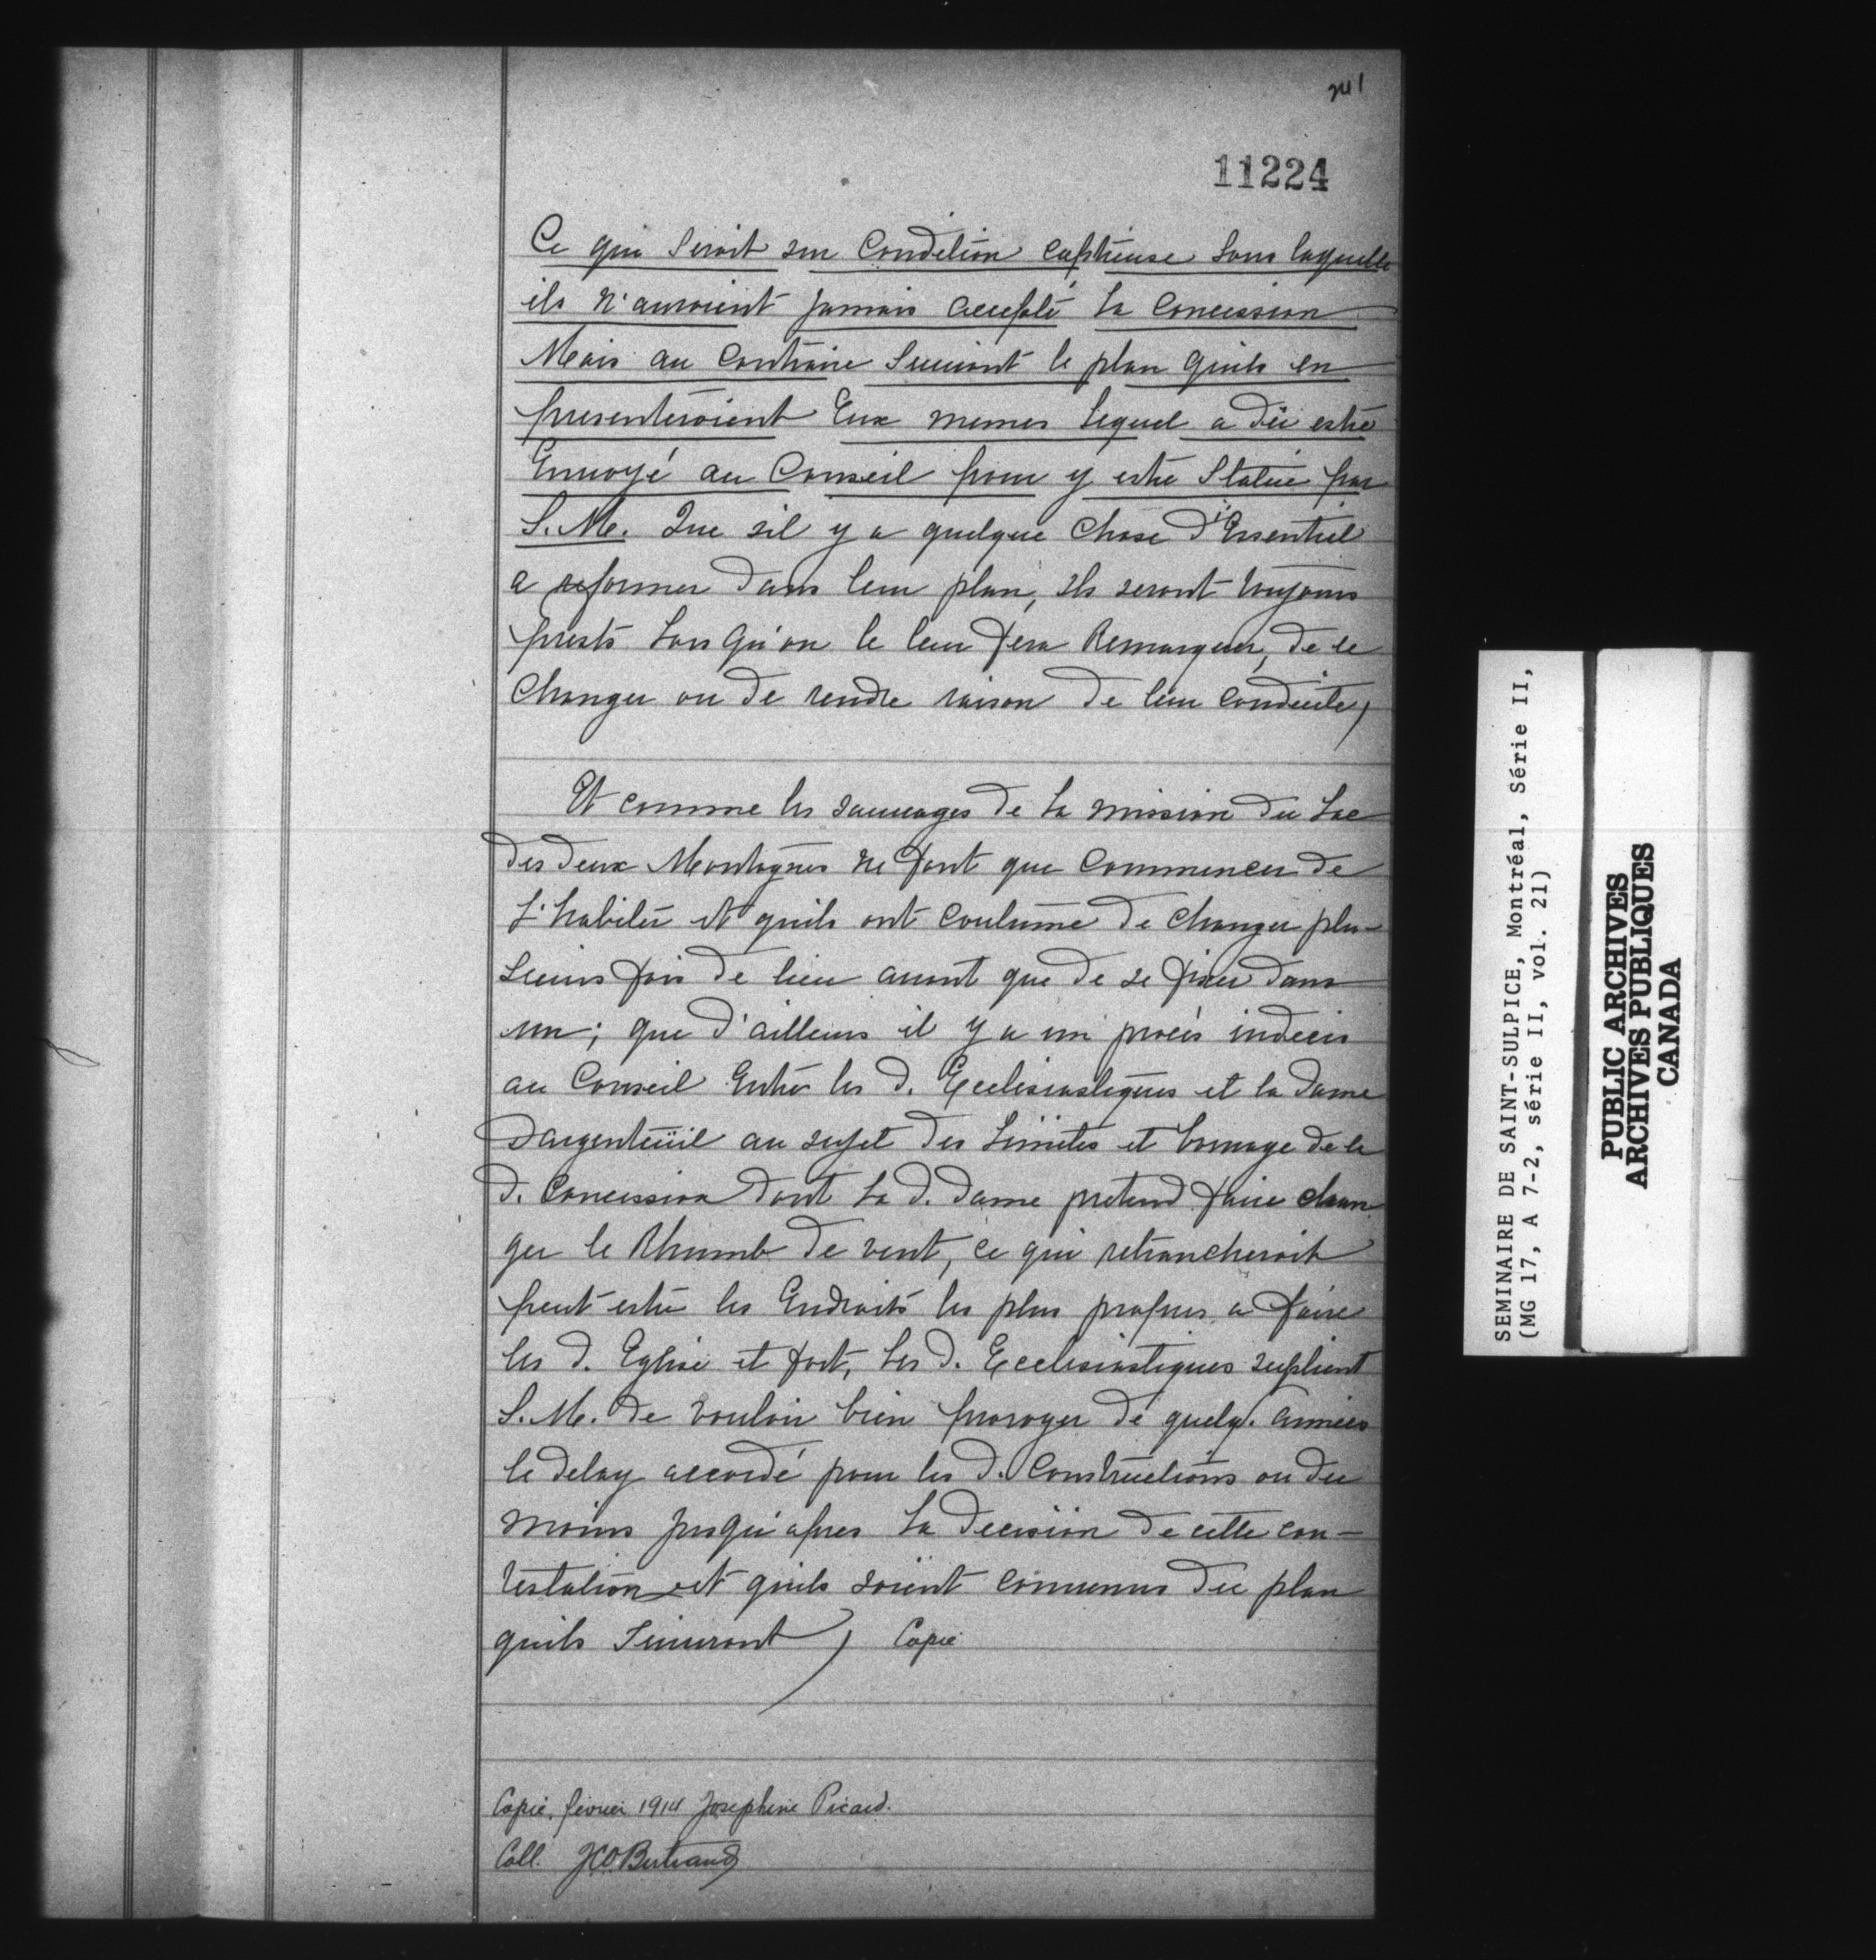 241
11224
Ce qui seroit un condition captieuse sous laquelle
ils n'auroient jamais accepté la concession
Mais au contraire suivant le plan quils en
presenteroient Eux memes lequel a dû estre
Envoyé au Conseil pour y estre Statué par
S.M. Que sil y a quelque chose d'Essentiel
a reformer dans leur plan, ils seront toujours
prests lors qu'on le leur fera Remarquer, de le
changer ou de rendre raison de leur conduite,
Et comme les sauuages de la mission du Lac
des deux Montagnes ne font que commencer de
L'habiter et quils ont coutume de changer plu-
sieurs fois de lieu auant que de se fixer dans
un; que d'ailleurs il y a un procès indecis
au Conseil Entre les d. Ecclesiastiques et la dame
Dargenteüil au sujet des Limites et bornage de la
d. Concession dont la d. dame pretend faire chan
ger le Rhumb de vent, ce qui retrancheroit
peut estre les Endroits les plus propres a faire
les d. Eglise et fort, Les d. Ecclesiastiques suplient
S.M. de vouloir bien proroger de quelq. années
le delay accordé pour les d. Constructions ou du
moins jusqu'apres la decision de cette con-
testation et quils soient conuenus du plan
quils suiuront, Copie
Copié, février 1914 Josephine Picard.
Coll. JCO Bertrand
SEMINAIRE DE SAINT-SULPICE, Montréal, Série II,
(MG 17, A 7-2, série II, vol. 21)
PUBLIC ARCHIVES
ARCHIVES PUBLIQUES
CANADA